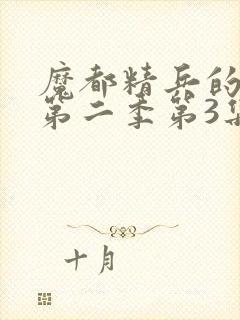 魔都精兵的
第二季第3集
十月